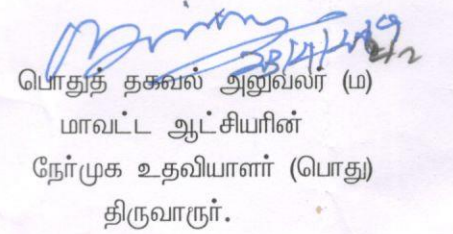 பொதுத் தகவல் அலுவலர் (ம)
மாவட்ட ஆட்சியரின்
நேர்முக உதவியாளர் (பொது)
திருவாரூர்.